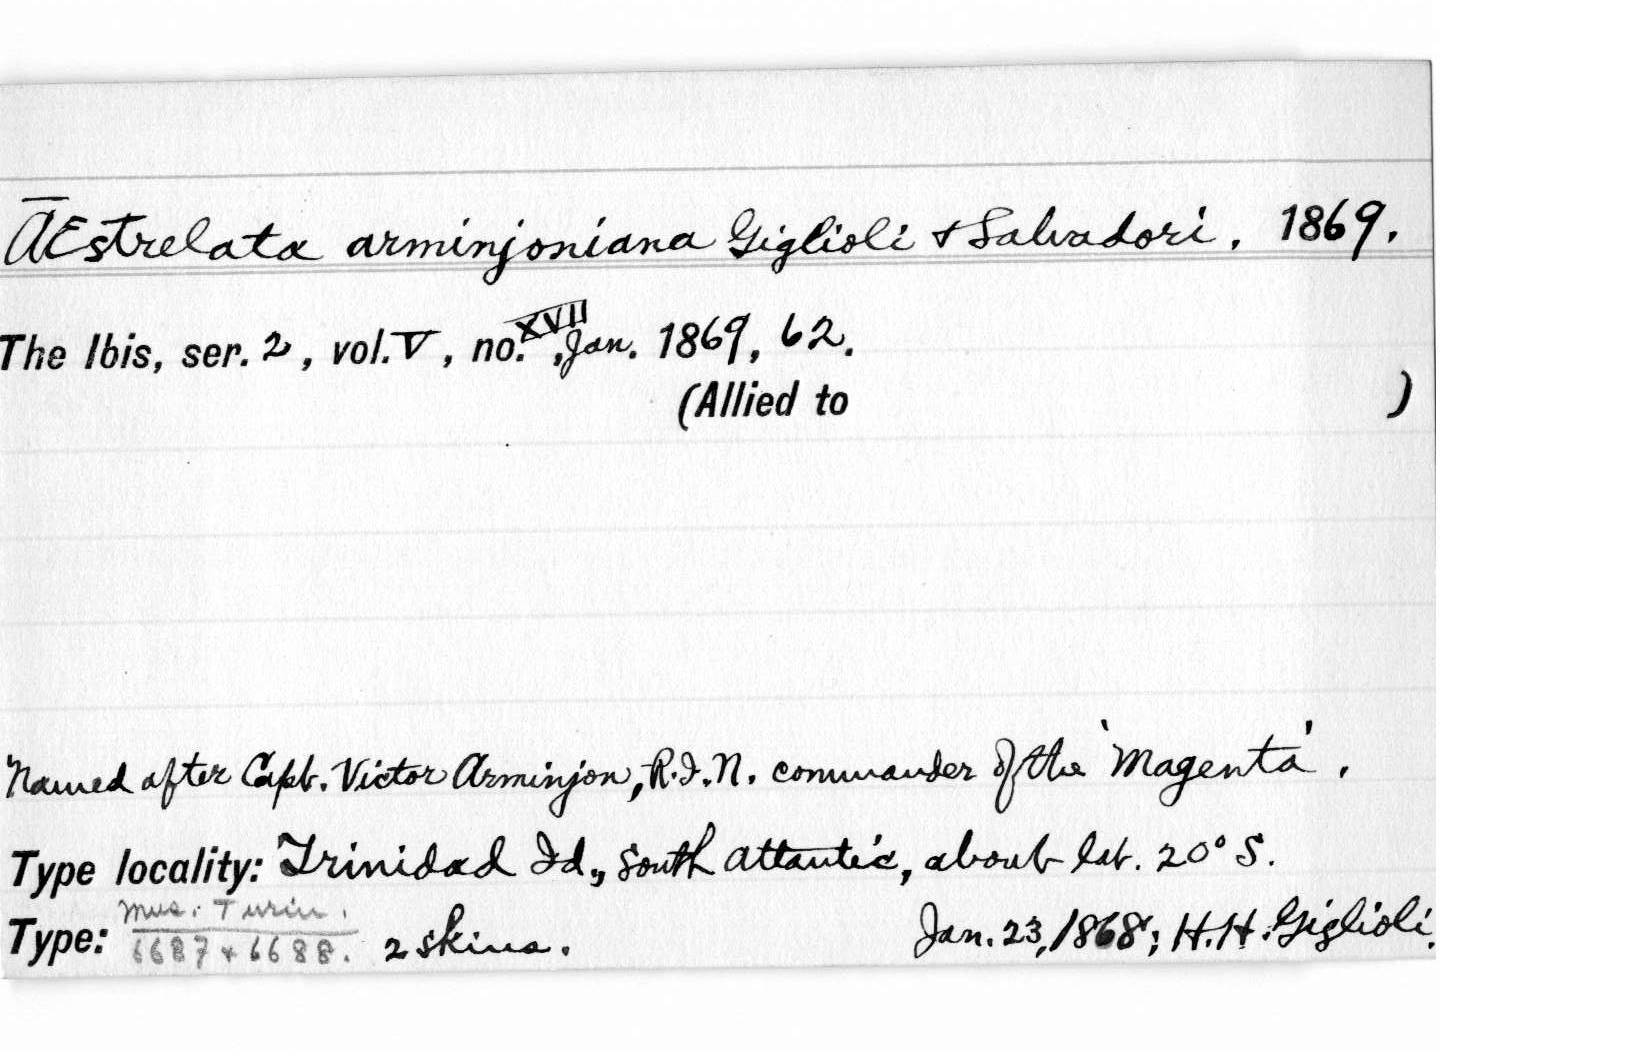 Æstrelata arminjoniana Giglioli & Salvadori. 1869.
The Ibis, ser. 2, vol. V, no. XVII, Jan. 1869, 62.
(Allied to )
Named after Capt. Victor Arminjon, R.I.N. commander of the 'Magenta'.
Type locality: Trinidad Id., South Atlantic, about lat. 20° S.
Mus. Turin.
Type: 6687 & 6688. 2 skins. Jan. 23, 1868; H.H. Giglioli.